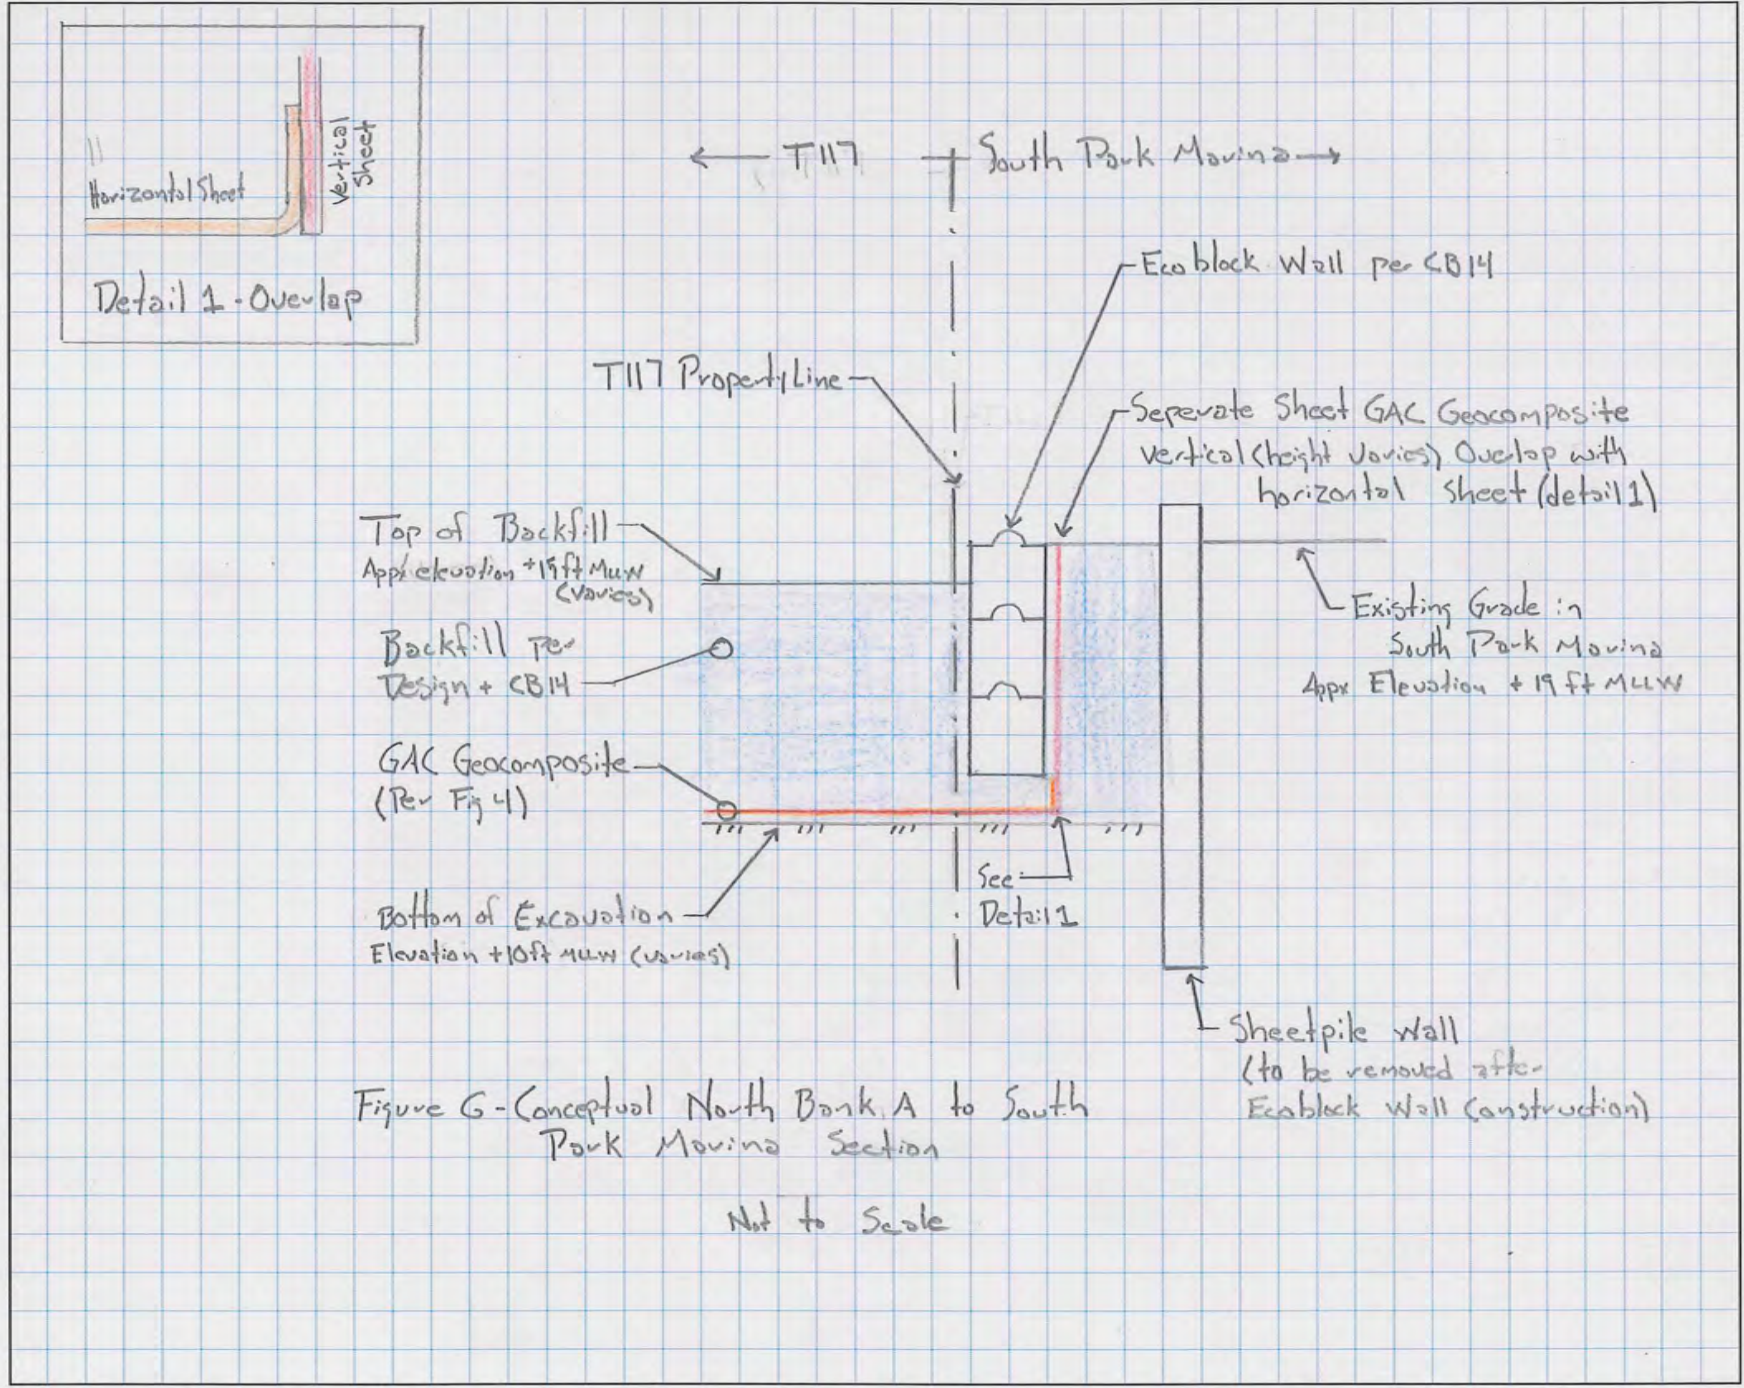 Horizontal Sheet
Vertical
Sheet
Detail 1 - Overlap
← T117
South Park Marina →
Ecoblock Wall per CB14
T117 Property Line
Seperate Sheet GAC Geocomposite
vertical (height varies) Overlap with
horizontal sheet (detail 1)
Top of Backfill
Appx elevation +15ft MLLW
(varies)
Existing Grade in
South Park Marina
Appx Elevation + 19 ft MLLW
Backfill per
Design + CB14
GAC Geocomposite
(Per Fig 4)
See
Detail 1
Bottom of Excavation
Elevation +10ft MLLW (varies)
Sheetpile Wall
(to be removed after
Ecoblock Wall Construction)
Figure 6 - Conceptual North Bank A to South
Park Marina Section
Not to Scale